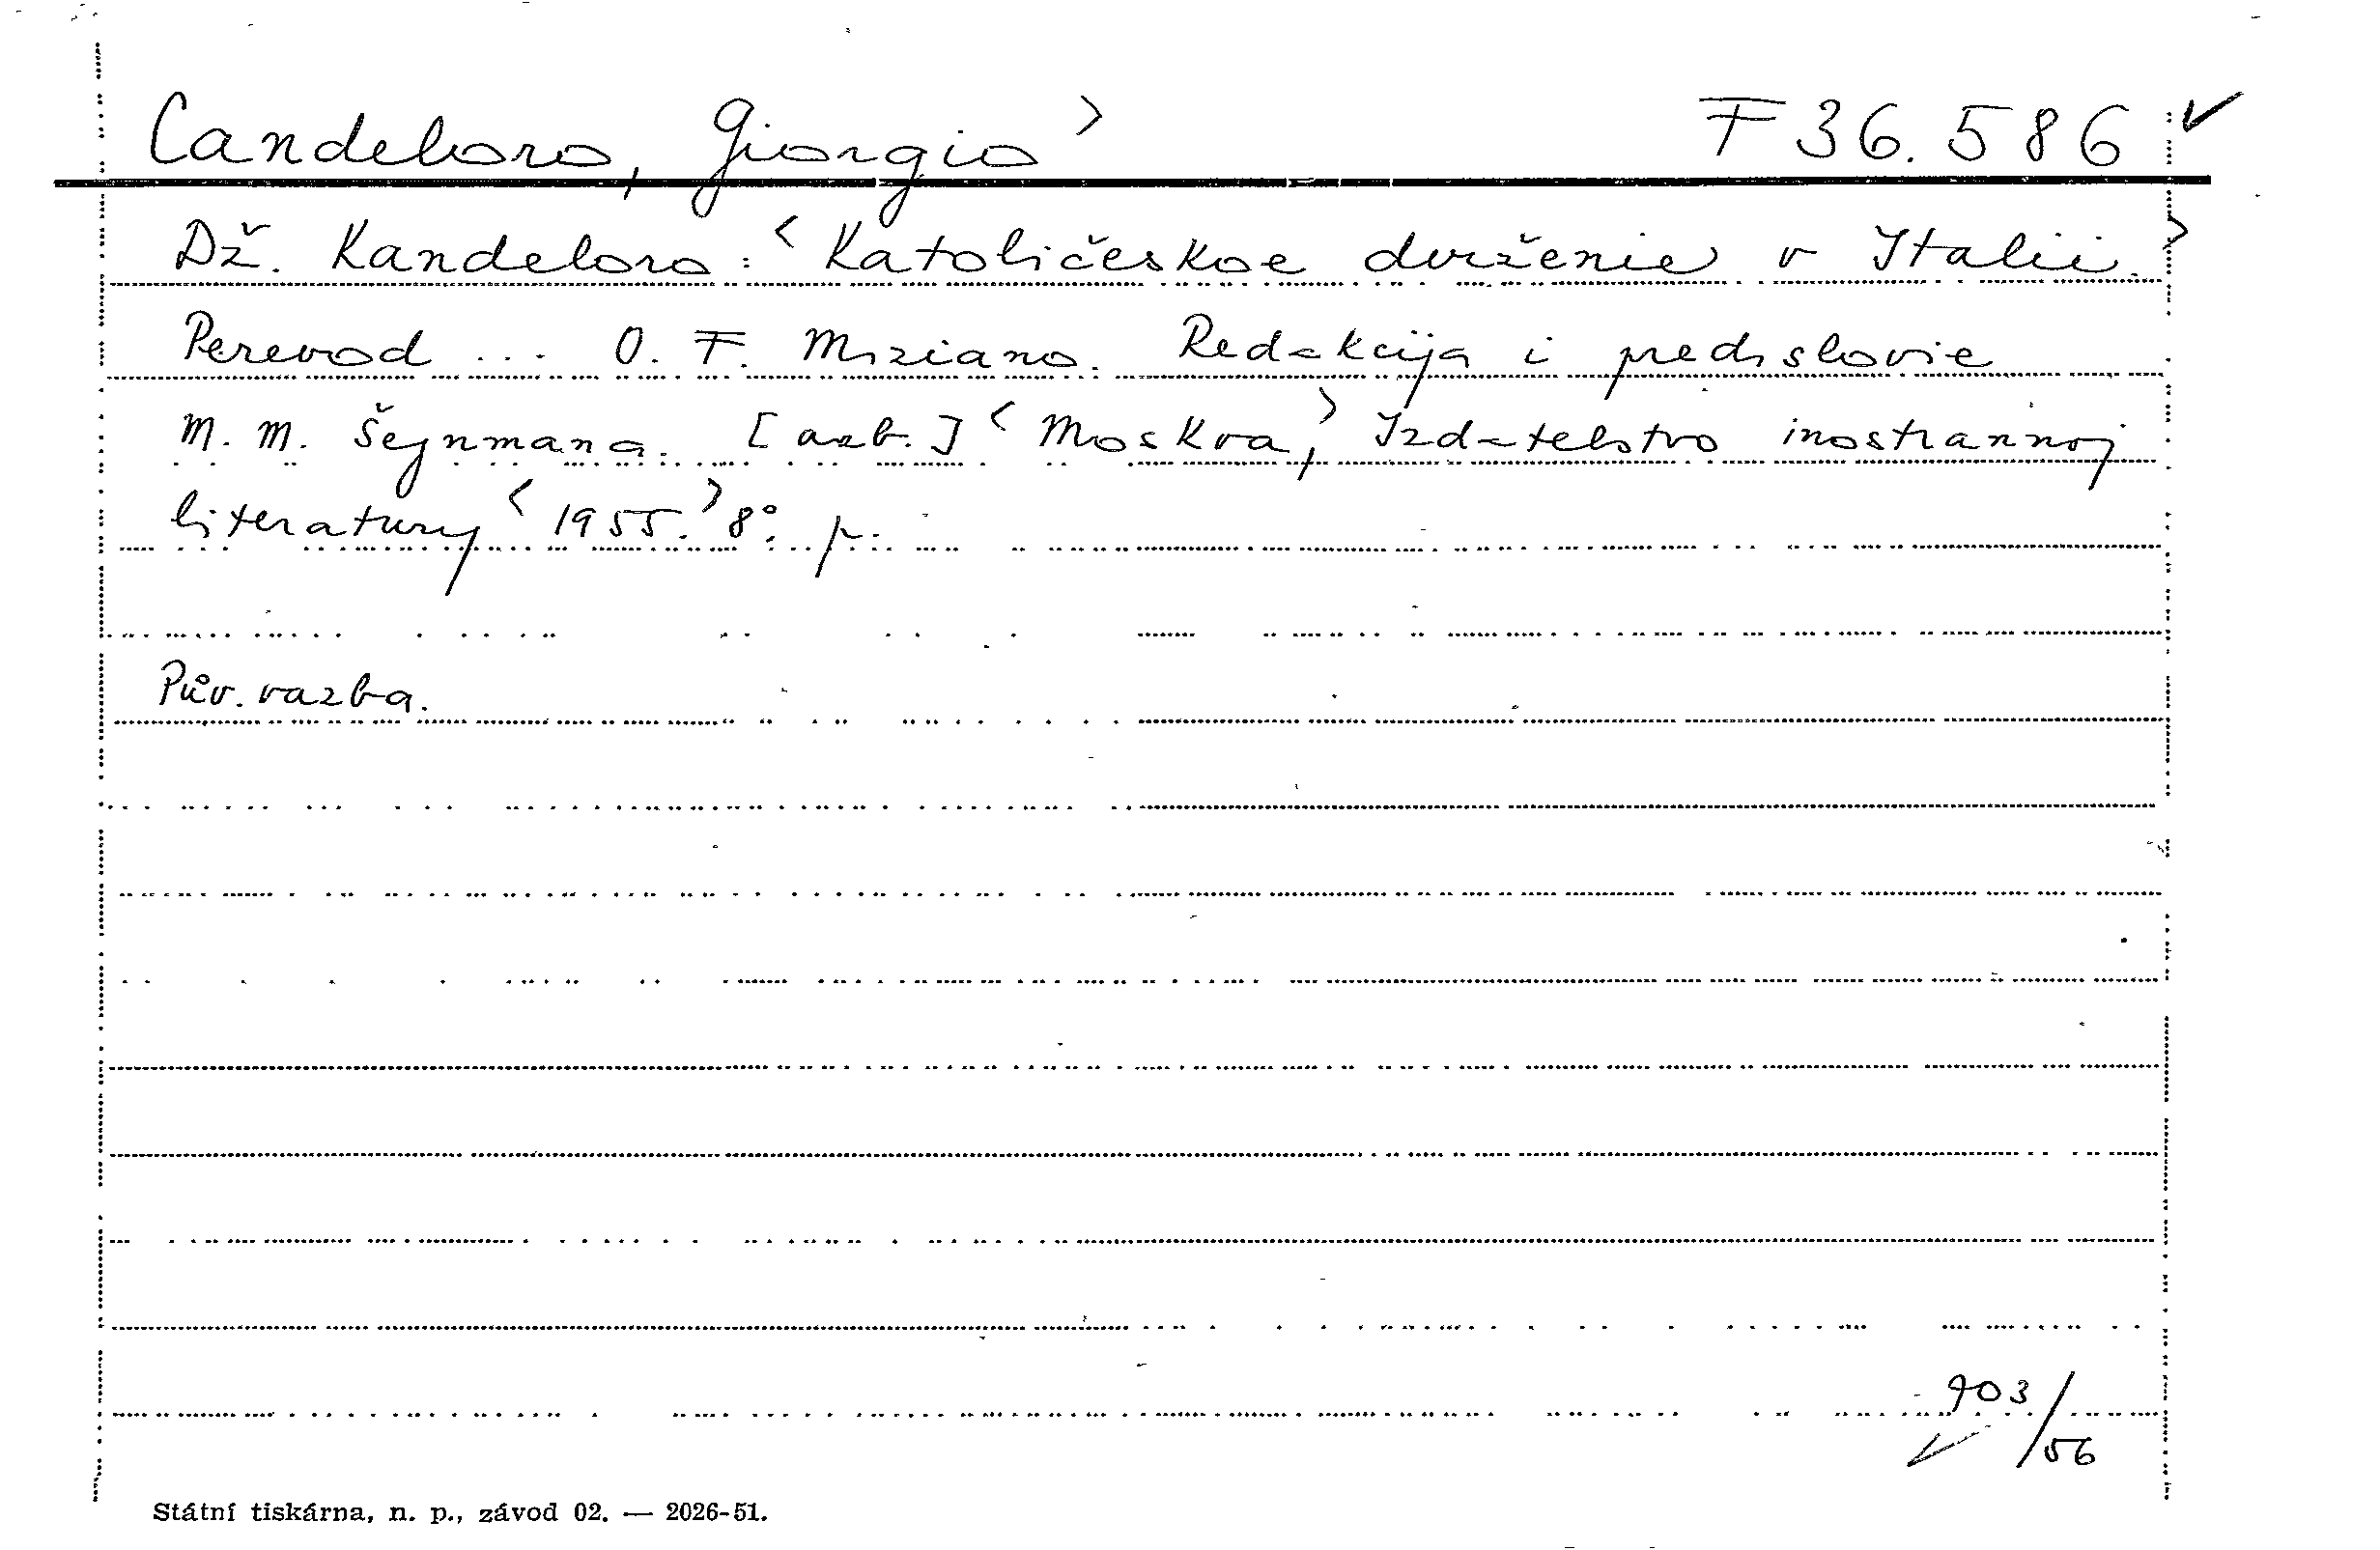 Candeloro, Giorgio> F 36.586 ✓
Dž. Kandeloro: <Katoličeskoe dviženie v Italii.>
Perevod ... O. F. Mziano. Redakcija i predislovie
M. M. Šejnmana. [azb.] <Moskva,> Izdatelstvo inostrannoj
literatury <1955.> 8°. p.
Pův. vazba.
903/56
Státní tiskárna, n. p., závod 02. — 2026-51.